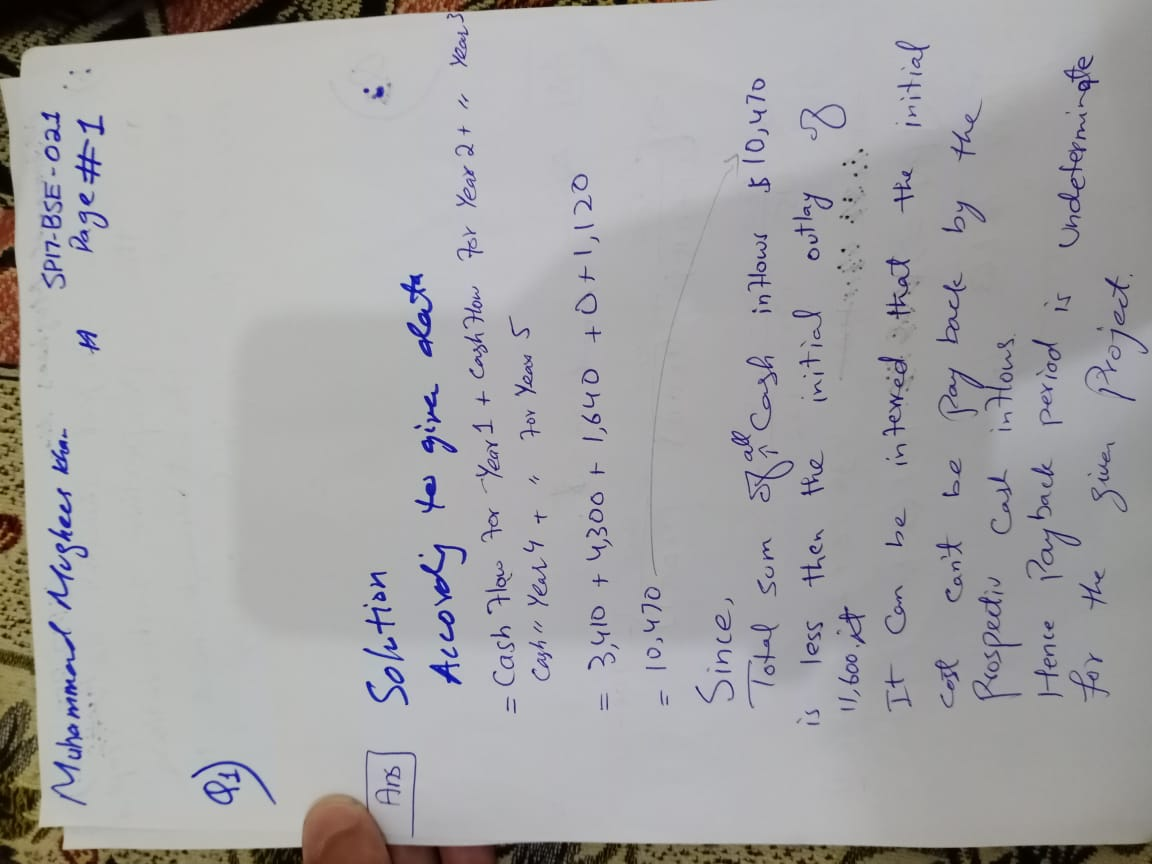 Muhammad Mughees Khan M SP17-BSE-021
Page #1
Q1)
Ans Solution
According to given data
= Cash Flow For Year 1 + Cash Flow For Year 2 + " Year 3
Cash " Year 4 + " For Year 5
= 3,410 + 4,300 + 1,640 + 0 + 1,120
= 10,470
Since,
Total sum of all Cash inflows $ 10,470
is less then the initial outlay of
11,600.it
It Can be inferred that the initial
cost can't be Pay back by the
Prospectiv Cash inflows.
Hence Payback period is Undeterminate
for the given Project.